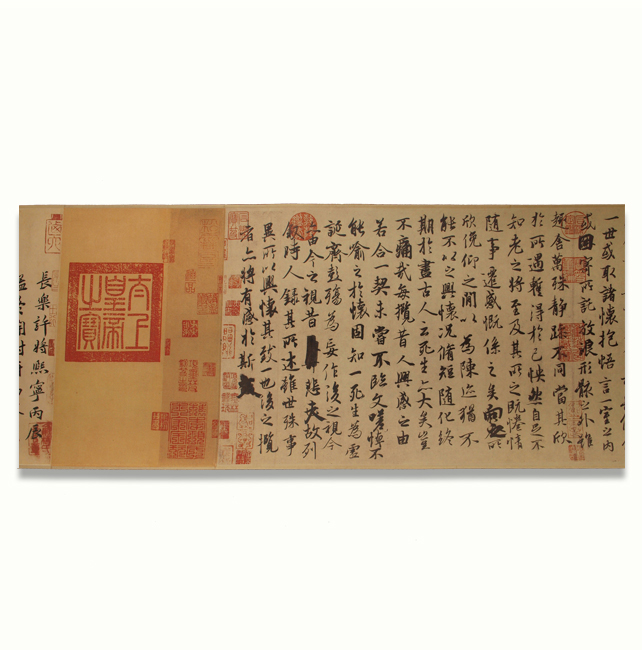 一世或取諸懷抱悟言一室之內
或因寄所託放浪形骸之外雖
趣舍萬殊靜躁不同當其欣
於所遇蹔得於己怏然自足不
知老之將至及其所之既惓情
隨事遷感慨係之矣向之所
欣俛仰之閒以為陳迹猶不
能不以之興懷況脩短隨化終
期於盡古人云死生亦大矣豈
不痛哉每攬昔人興感之由
若合一契未嘗不臨文嗟悼不
能喻之於懷固知一死生為虛
誕齊彭殤為妄作後之視今
亦由今之視昔悲夫故列
敘時人錄其所述雖世殊事
異所以興懷其致一也後之攬
者亦將有感於斯文
太上
皇帝
之寶
長樂許將熙寧丙辰